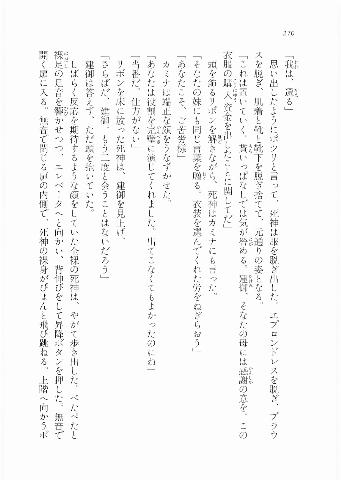 270
「我は、還る」
思い出したようにポツリと言って、死神は服を脱ぎ出した。エプロンドレスを脱ぎ、ブラウ
スを脱ぎ、肌着と靴と靴下を脱ぎ捨てて、元通りの姿となる。
「これは置いていく。貰いっぱなしでは気が咎める。建御、そなたの母には感謝の意を。この
衣服の購入資金を出したことに関してだ」
頭を飾るリボンを解きながら、死神はカミナにも言った。
「そなたの妹にも同じ言葉を贈る。衣装を選んでくれた労をねぎらおう」
「あなたこそ、ご苦労様」
カミナは端正な顔をうなずかせた。
「あなたは役割を完璧に演じてくれました。出てこなくてもよかったのにね」
「当番だ。仕方がない」
リボンを床に放った死神は、建御を見上げ、
「さらばだ、建御。もう二度と会うことはないだろう」
建御は答えず、ただ頭を掻いていた。
しばらく反応を期待するような顔をしていた全裸の死神は、やがて歩き出した。ぺたぺたと
裸足の足音を響かせつつ、エレベータへと向かい、背伸びをして昇降ボタンを押した。無音で
開く扉に入る。無音で閉じる扉の内側で、死神の裸身がぴょんと飛び跳ねる。上階へ向かうボ